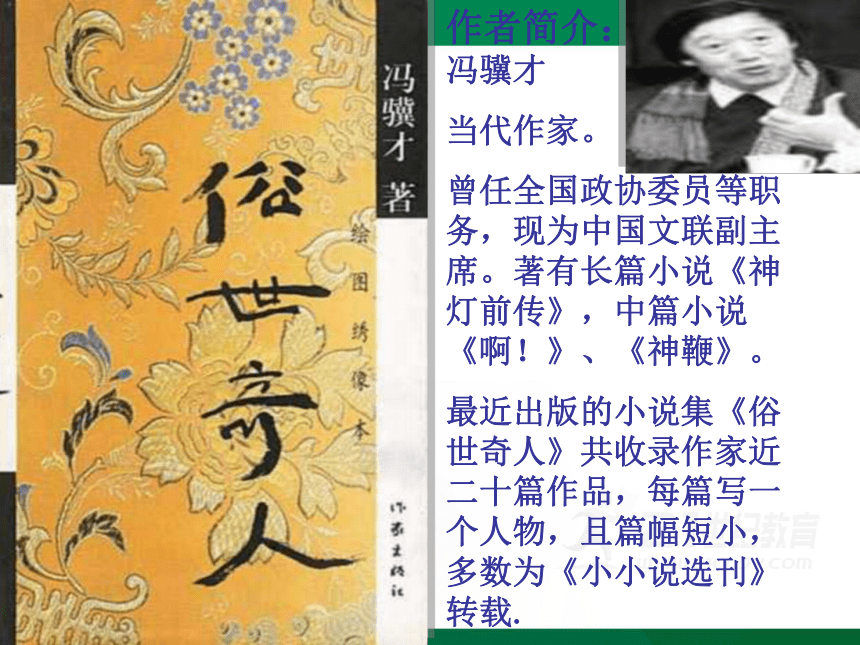 冯骥才 著
俗世奇人
绘图绣像本
作家出版社
作者简介：
冯骥才
当代作家。
曾任全国政协委员等职
务，现为中国文联副主
席。著有长篇小说《神
灯前传》，中篇小说
《啊！》、《神鞭》。
最近出版的小说集《俗
世奇人》共收录作家近
二十篇作品，每篇写一
个人物，且篇幅短小，
多数为《小小说选刊》
转载.